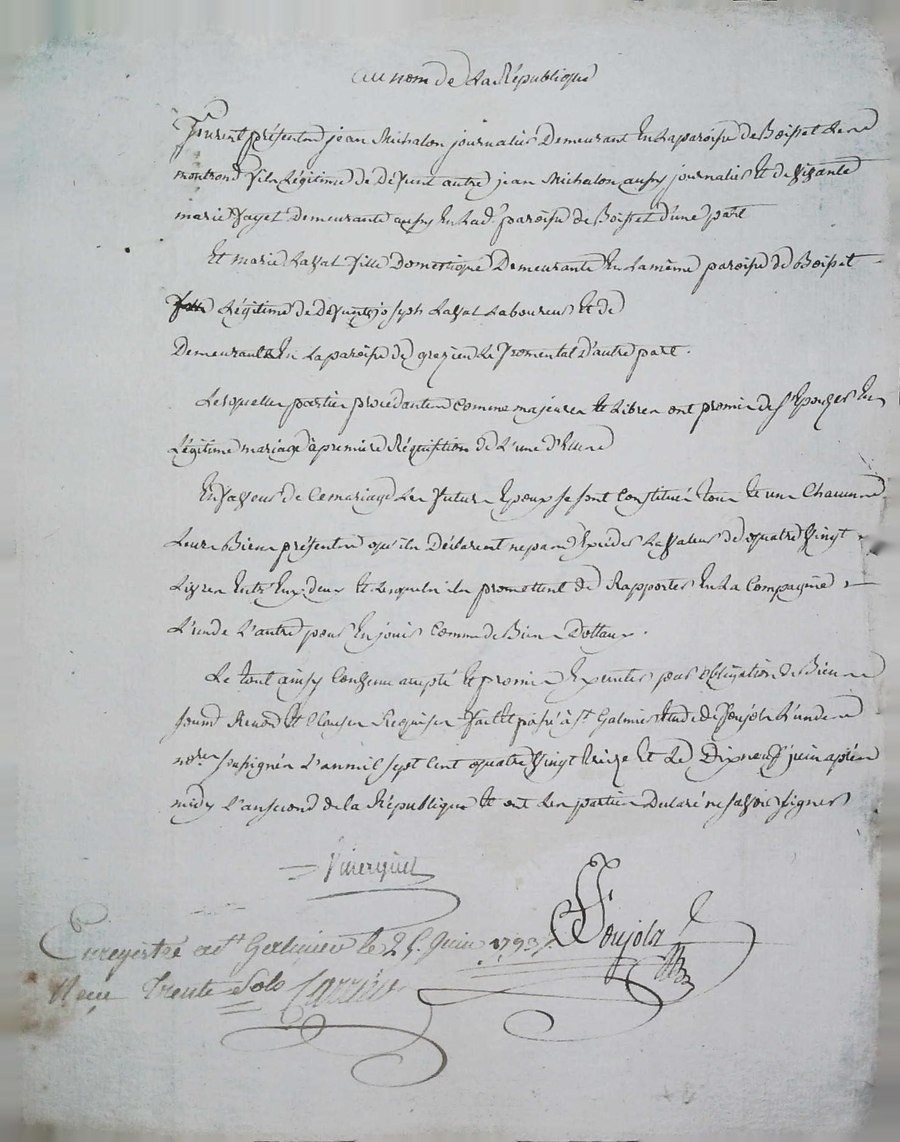 au nom de La République
Furent présentes jean Michalon journalier Demeurant En La paroisse de Boisset Les
montrond fils Légitime de Défunt autre jean Michalon aussy journalier Et de vivante
marie fayet Demeurante aussy En Lad. paroisse de Boisset d'une part
Et marie Laval fille Domestique Demeurante En La même paroisse de Boisset
Légitime de Défunt joseph Laval Laboureur Et de
Demeurante En La paroisse de grezieu Le fromental d'autre part.
Lesquelles parties procedantes comme majeures Et Libres ont promis de s'Epouzer En
Légitime mariage à premiere Réquisition de L'une d'Elles
En faveur de Ce mariage Les futurs Epoux se sont Constitués tous Et uns Chacuns
Leurs Biens présents qu'ils Déclarent ne pas Exceder La valeur de quatre vingt
Livres Entr'Eux deux Et Lesquels ils promettent de Rapporter En La Compagnie
L'un de L'autre pour En jouir Comme de Biens Dottaux.
Le tout ainsy Convenu accepté Et promis Exécuter par obligation de Biens
soumd Renond Et Clauses Requises fait Et passé à St Galmier Etude de Soujols L'un des
nores soussignés L'an mil sept Cent quatre vingt treize Et Le Dixneuf juin après
midy L'an second de la République Et ont Les parties Declaré ne savoir signer
Soujols
Enregistré a St Galmier le 25. Juin 1793.
Reçu trente Sols